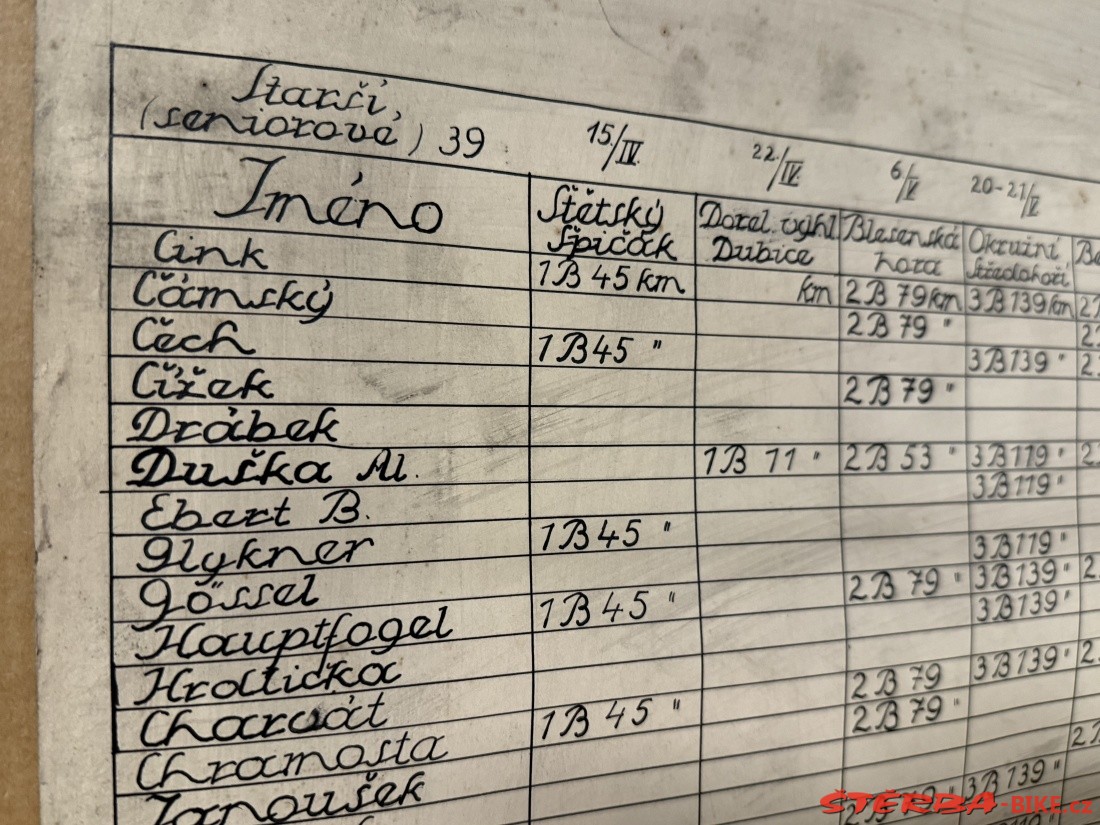 Starší,
(seniorové) 39 15./IV. 22./IV. 6/V 20-21/V
Jméno Štětský Dorel. výhl Blešenská Okružní
Špičák Dubice hora Středohoří
Cink 1B 45 km km 2B 79 km 3B 139 km
Čámský 2B 79 "
Čech 1B 45 " 3B 139 "
Čížek 2B 79 "
Drábek
Duška Al. 1B 11 " 2B 53 " 3B 119 "
Ebert B. 3B 119 "
Glykner 1B 45 " 3B 119 "
Gössel 2B 79 " 3B 139 "
Hauptfogel 1B 45 " 3B 139 "
Hrdlička 3B 139 "
Charvát 1B 45 " 2B 79
Chramosta 2B 79 "
Janoušek 3B 139 "
ŠTĚRBA-BIKE.cz